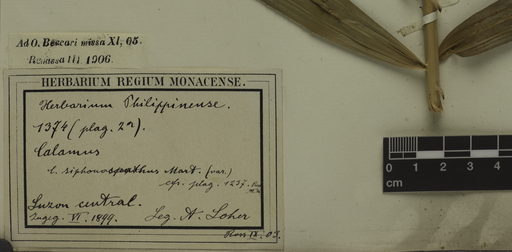 Ad O. Beccari missa XI, 05.
Remissa III 1906.
HERBARIUM REGIUM MONACENSE.
Herbarium Philippinense.
1374 (plag. 2a).
Calamus
C. siphonospathus Mart. (var.)
cfr. plag. 1237.
Luzon central.
VI. 1899. Leg. A. Loher
Ross IX. 05.
0 1 2 3 4
cm